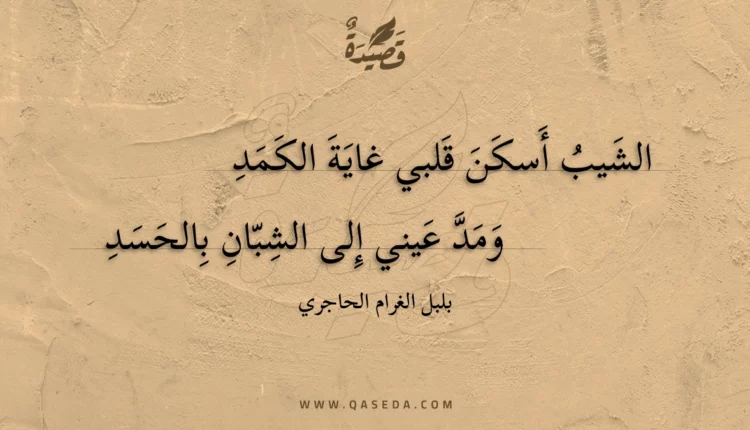 قَصِيْدَةٌ
الشَيبُ أَسكَنَ قَلبي غايَةَ الكَمَدِ
وَمَدَّ عَيني إِلى الشِبّانِ بِالحَسَدِ
بلبل الغرام الحاجري
WWW.QASEDA.COM